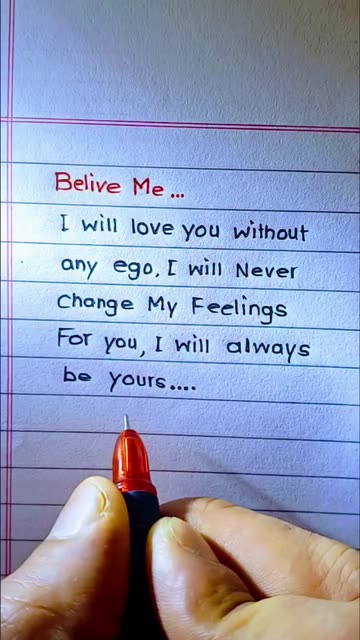 Belive Me...
I will love you without
any ego, I will Never
Change My Feelings
For you, I will always
be yours....